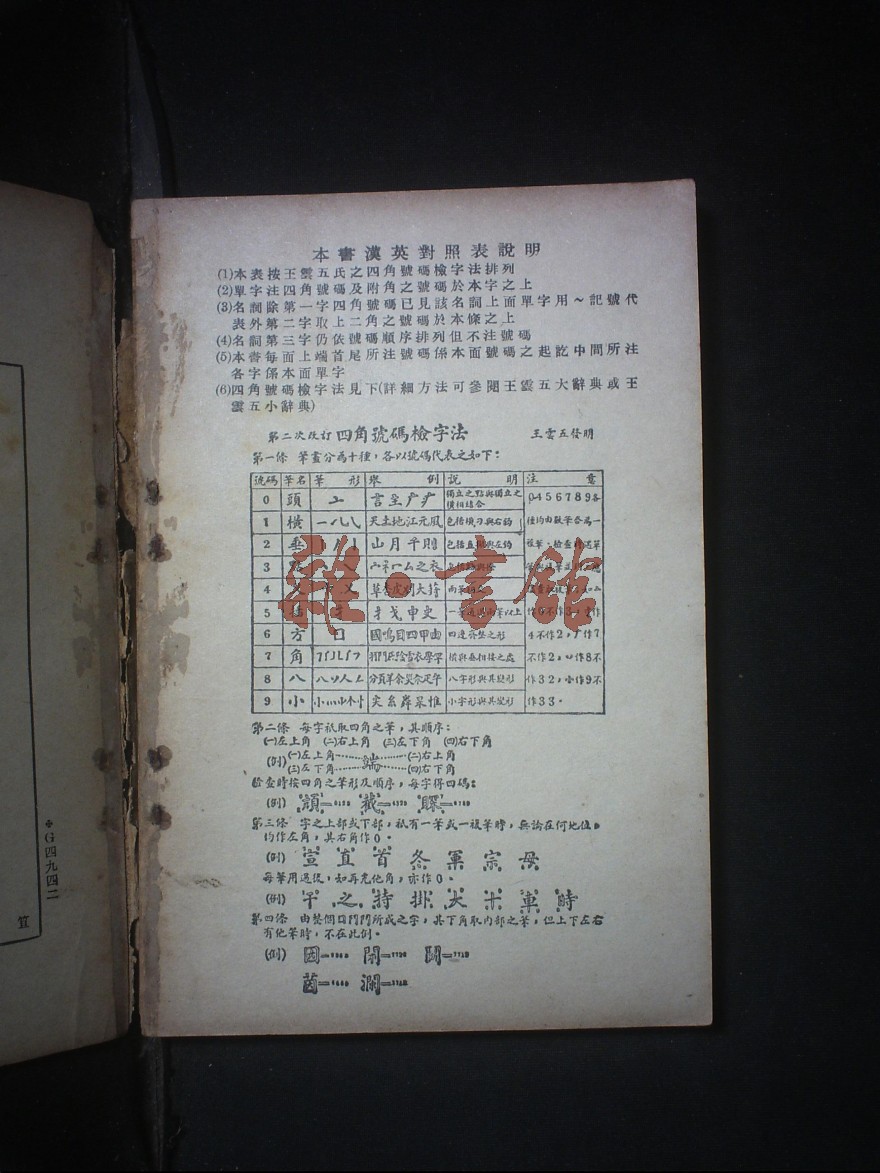 本書漢英對照表說明
(1)本表按王雲五氏之四角號碼檢字法排列
(2)單字注四角號碼及附角之號碼於本字之上
(3)名詞除第一字四角號碼已見該名詞上面單字用～記號代
表外第二字取上二角之號碼於本條之上
(4)名詞第三字仍依號碼順序排列但不注號碼
(5)本書每面上端首尾所注號碼係本面號碼之起訖中間所注
各字係本面單字
(6)四角號碼檢字法見下(詳細方法可參閱王雲五大辭典或王
雲五小辭典)
第二次改訂 四角號碼檢字法 王雲五發明
第一條 筆畫分為十種，各以號碼代表之如下：
號碼 筆名 筆形 舉例 說明 注意
0 頭 亠 言至广疒 獨立之點與獨立之橫相結合
1 橫 天土地江元風 包括橫刁與右鈎
2 垂 山月千則 包括直撇與左鈎
3
4 乂
5
6 方 口 國鳴目四甲由 四邊齊整之形
7 角 橫與垂相接之處
8 八 八丷人𠆢 八字形與其變形
9 小 尖糸舜杲惟 小字形與其變形
0 4 5 6 7 8 9 各
種均由數筆合為一
不作2，口作8不
作32，小作9不
作33。
第二條 每字祇取四角之筆，其順序：
(一)左上角 (二)右上角 (三)左下角 (四)右下角
(例) (一)左上角 端 (二)右上角
(三)左下角 (四)右下角
檢查時按四角之筆形及順序，每字得四碼：
(例) 顏= 截=
第三條 字之上部或下部，祇有一筆或一複筆時，無論在何地位，
均作左角，其右角作0。
(例) 宣 直 首 冬 軍 宗 母
每筆用過後，如再充他角，亦作0。
(例) 干 之 持 掛 大 十 車 時
第四條 由整個囗門鬥所成之字，其下角取內部之筆，但上下左右
有他筆時，不在此例。
(例) 因= 閉= 鬭=
茵= 瀾=
雜·書館
＊G四九四二